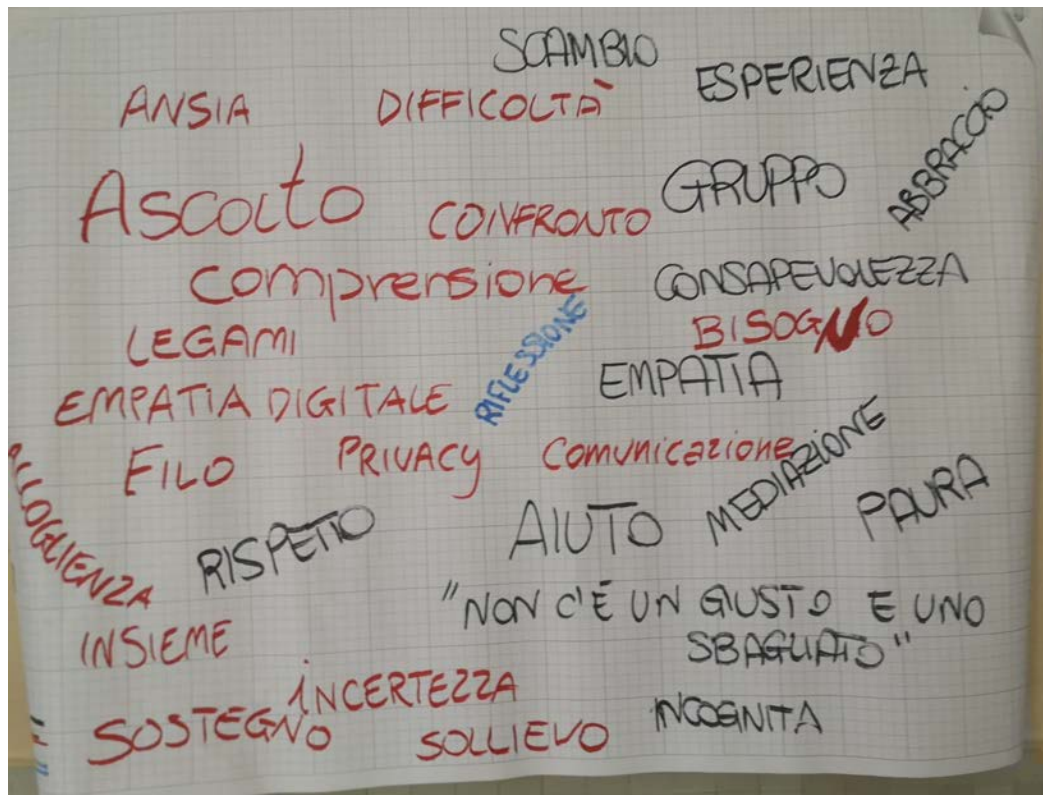 SCAMBIO
ANSIA DIFFICOLTÀ ESPERIENZA
ABBRACCIO
Ascolto CONFRONTO GRUPPO
comprensione CONSAPEVOLEZZA
LEGAMI RIFLESSIONE BISOGNO
EMPATIA DIGITALE EMPATIA
FILO PRIVACY Comunicazione MEDIAZIONE
ACCOGLIENZA RISPETTO AIUTO PAURA
"NON C'È UN GIUSTO E UNO
SBAGLIATO"
INSIEME
INCERTEZZA
SOSTEGNO SOLLIEVO INCOGNITA